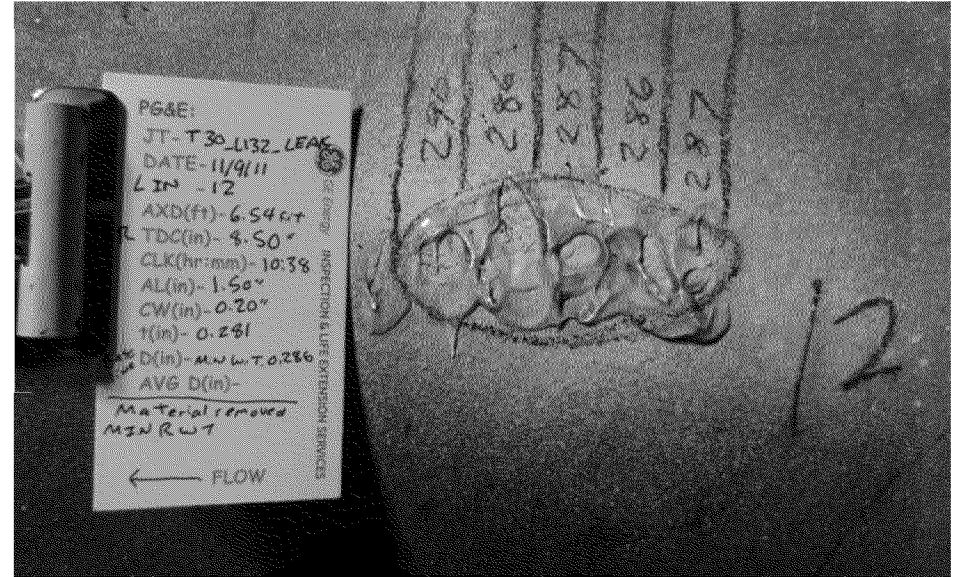 PG&E:
JT- T30_L132_LEAK
DATE- 11/9/11
LIN - 12
AXD(ft)- 6.54 FT
TDC(in)- 8.50"
CLK(hr:mm)- 10:38
AL(in)- 1.50"
CW(in)- 0.20"
t(in)- 0.281
D(in)- MIN W.T. 0.286
AVG D(in)-
Material removed
MIN RWT
← FLOW
GE Energy INSPECTION & LIFE EXTENSION SERVICES
296
286
287
286
287
12